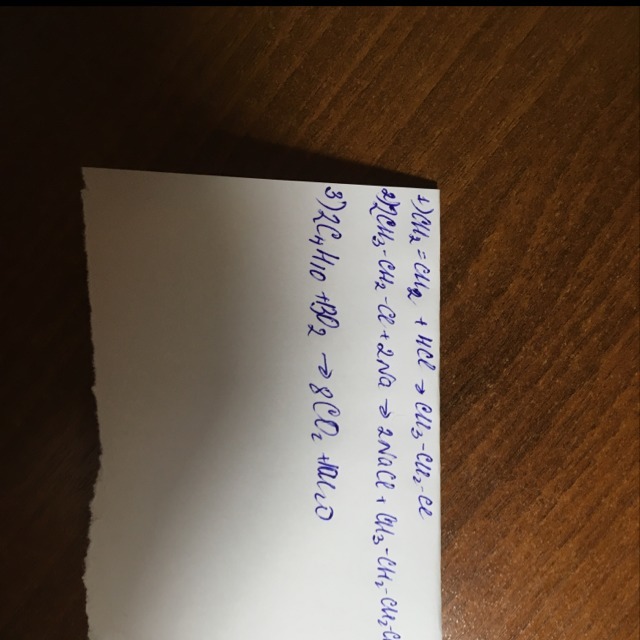 1) CH₂ = CH₂ + HCl → CH₃-CH₂-Cl
2) 2CH₃-CH₂-Cl + 2Na → 2NaCl + CH₃-CH₂-CH₂-
3) 2C₄H₁₀ + 13O₂ → 8CO₂ + 10H₂O